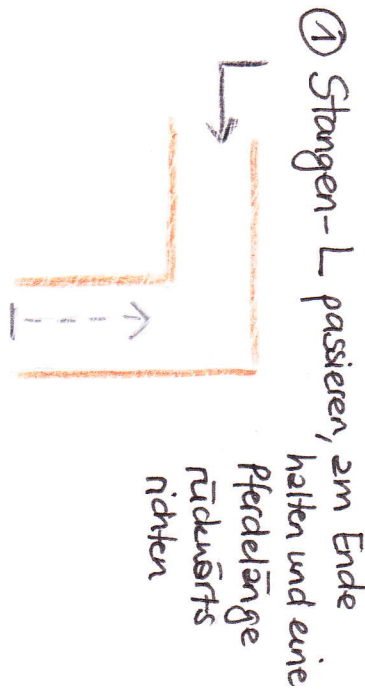 ① Stangen-L passieren, am Ende
halten und eine
Pferdelänge
rückwärts
richten